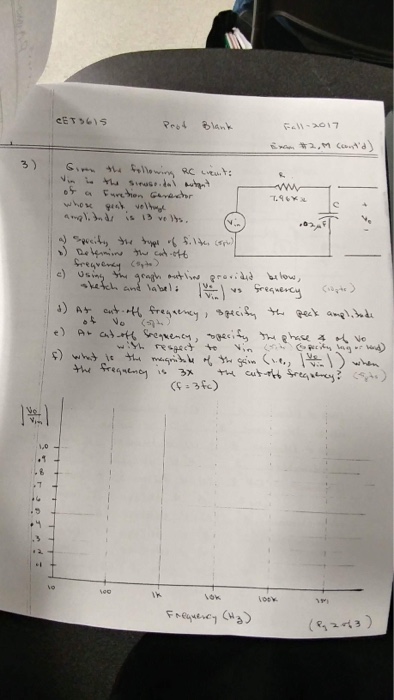 CET3615 Prof Blank Fall-2017
Exam #2, M (cont'd)
3) Given the following RC circuit:
Vin is the sinusoidal output
of a Function Generator
whose peak voltage
amplitude is 13 volts.
R
7.96K Ω
C
.02 μF
Vin
+
Vo
-
a) Specify the type of filter (5pts)
b) Determine the cut-off
frequency (5pts)
c) Using the graph outline provided below,
sketch and label: |Vo/Vin| vs frequency
d) At cut-off frequency, specify the peak amplitude
of Vo (5pts)
e) At cut-off frequency, specify the phase ∡ of Vo
with respect to Vin (specify lag or lead)
f) what is the magnitude of the gain (i.e., |Vo/Vin|) when
the frequency is 3X the cut-off frequency? (5pts)
(f = 3fc)
|Vo/Vin|
1.0
.9
.8
.7
.6
.5
.4
.3
.2
.1
10 100 1K 10K 100K 1M
Frequency (Hz)
(Pg 2 of 3)